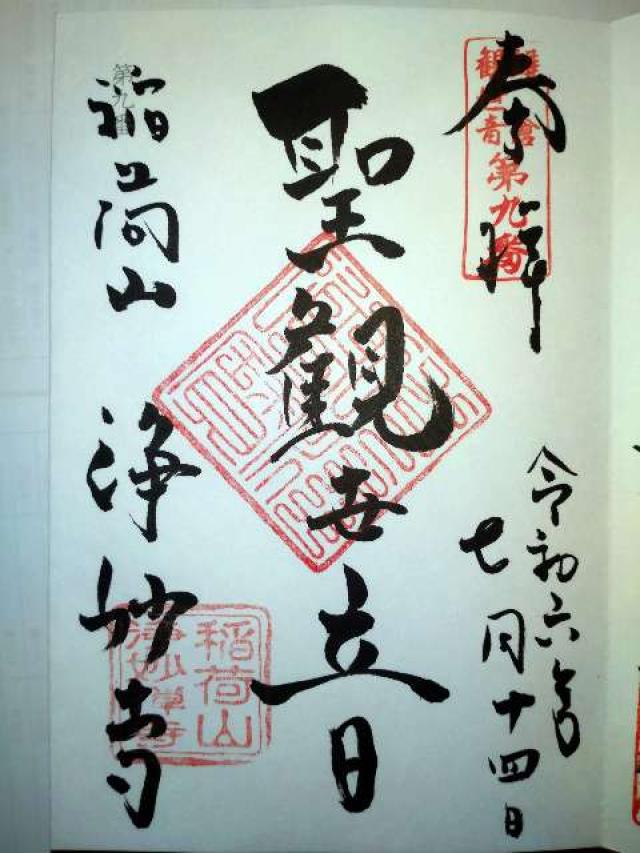 奉拝
鎌倉
観世音
第九番
令和六年
七月十四日
聖觀世音
第九番
稲荷山
浄妙寺
稲荷山
浄妙
寺